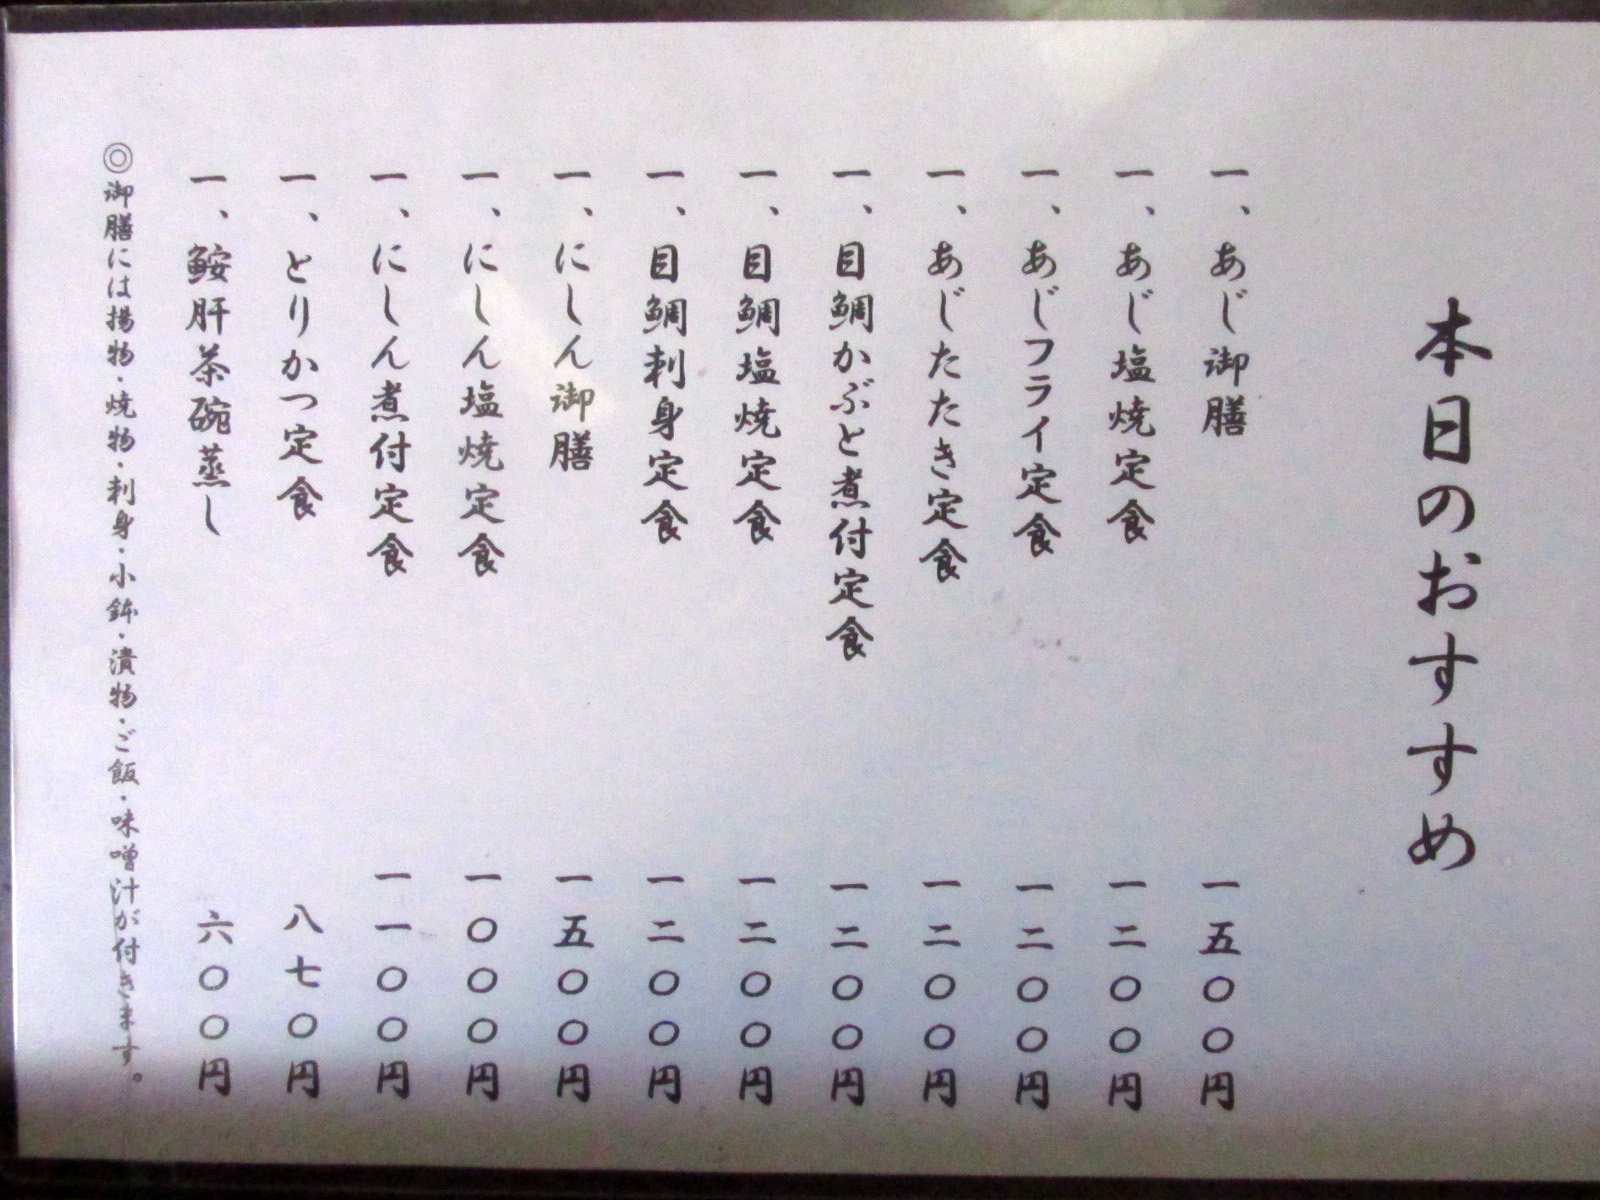 本日のおすすめ
一、あじ御膳 一五〇〇円
一、あじ塩焼定食 一二〇〇円
一、あじフライ定食 一二〇〇円
一、あじたたき定食 一二〇〇円
一、目鯛かぶと煮付定食 一二〇〇円
一、目鯛塩焼定食 一二〇〇円
一、目鯛刺身定食 一二〇〇円
一、にしん御膳 一五〇〇円
一、にしん塩焼定食 一〇〇〇円
一、にしん煮付定食 一一〇〇円
一、とりかつ定食 八七〇円
一、鮟肝茶碗蒸し 六〇〇円
◎御膳には揚物・焼物・刺身・小鉢・漬物・ご飯・味噌汁が付きます。